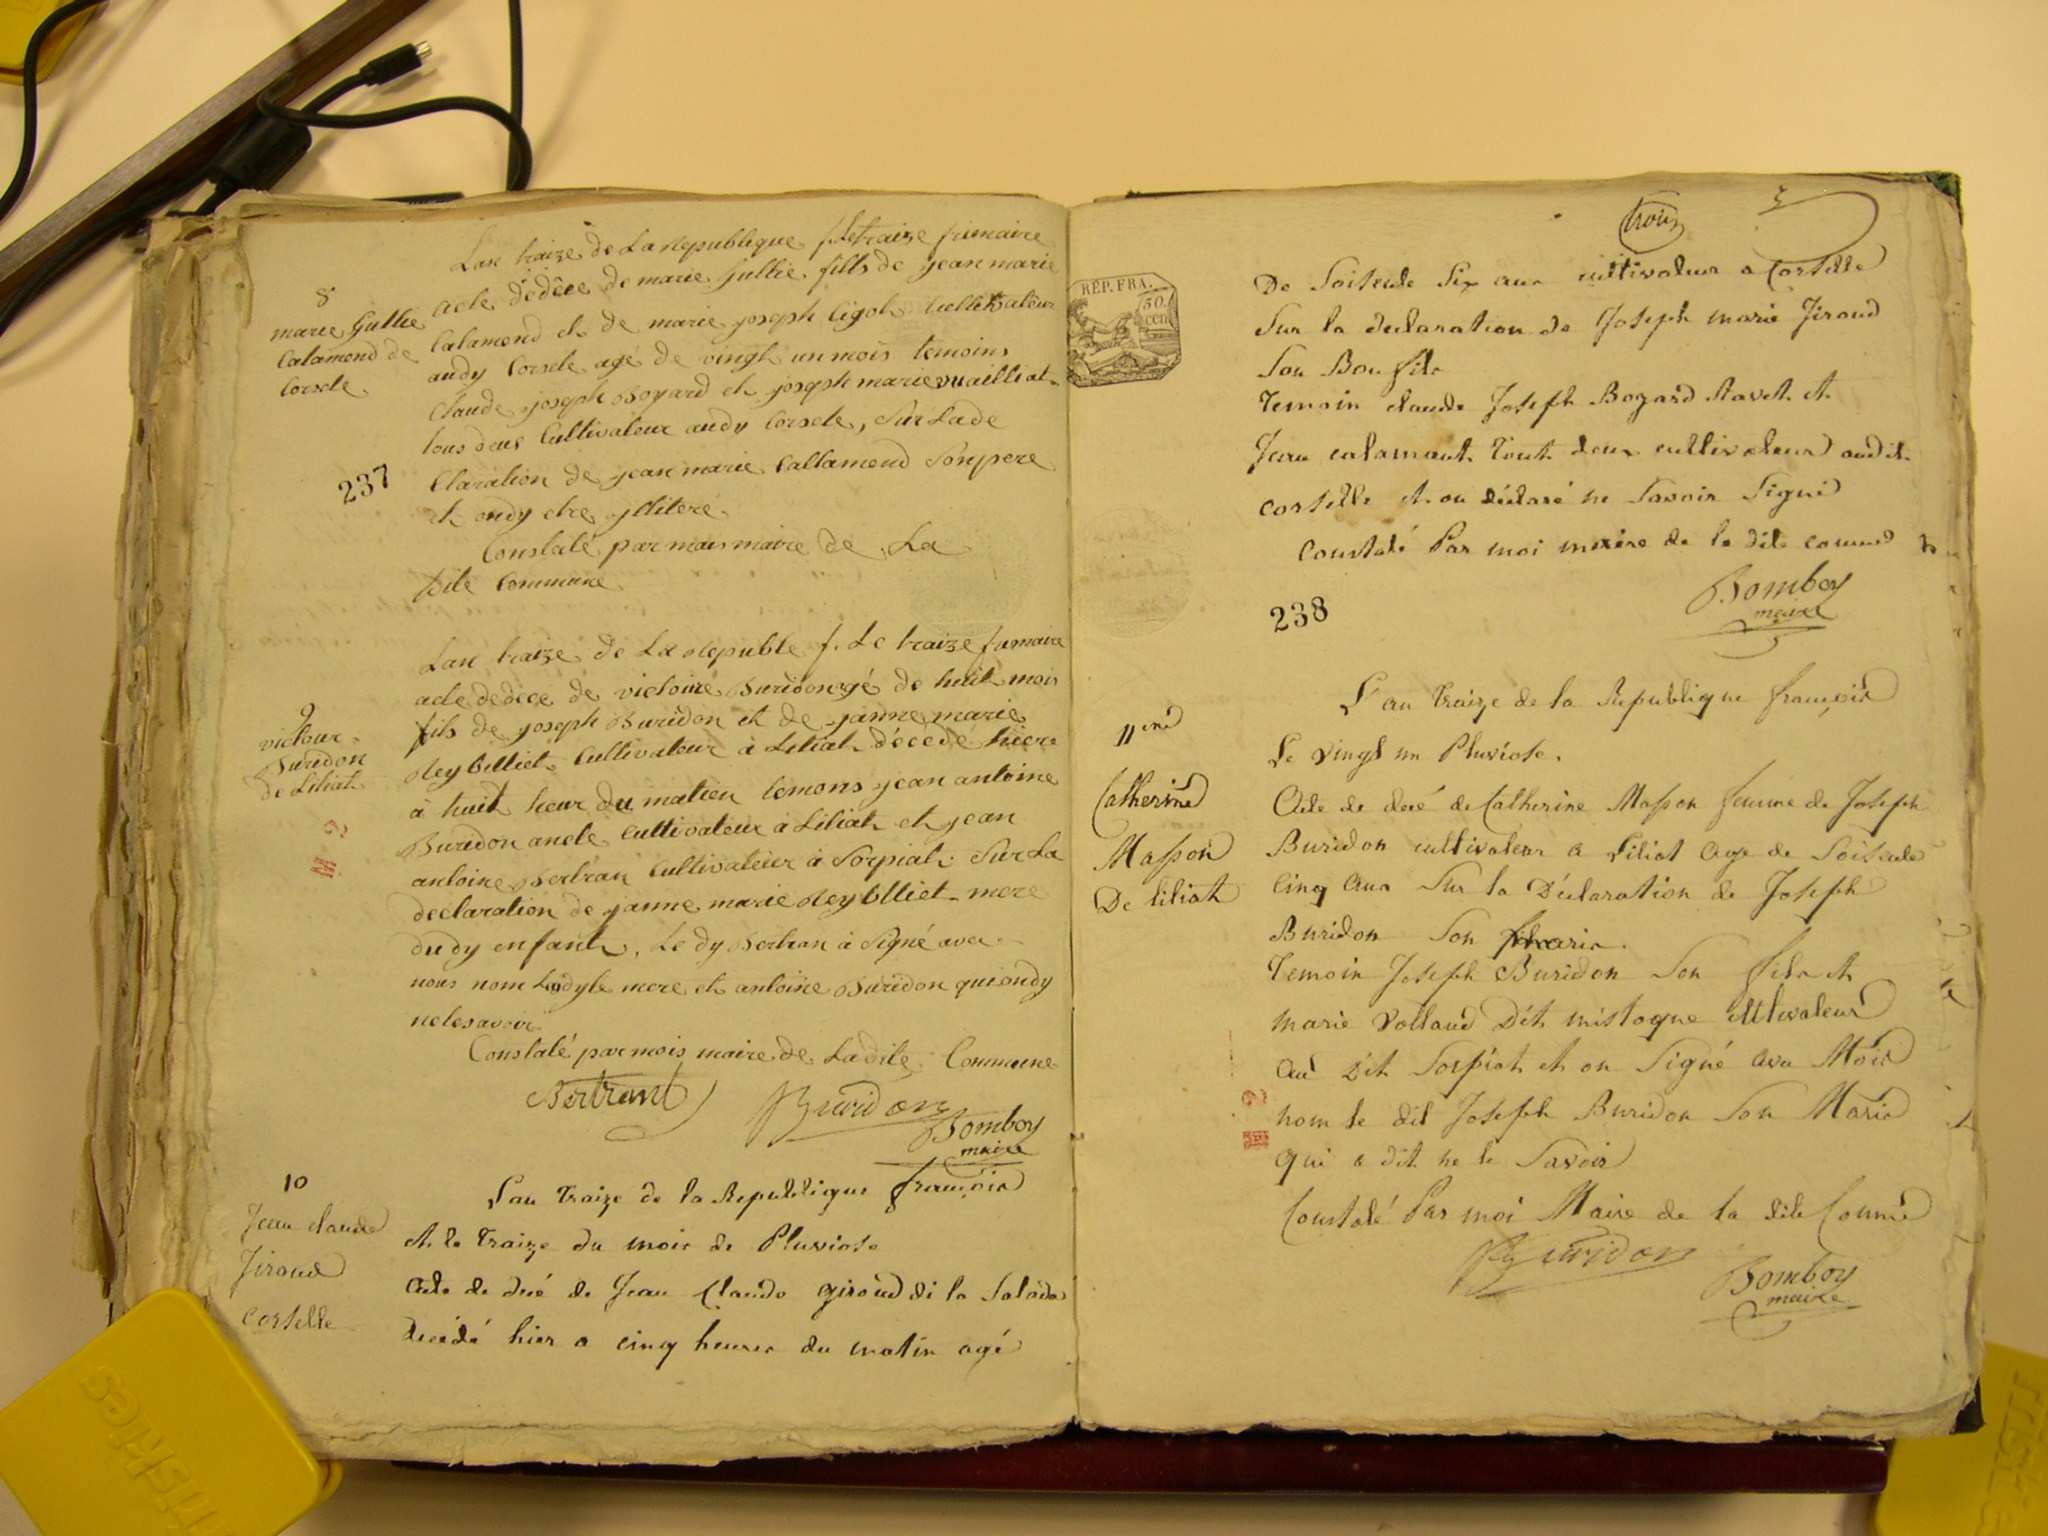 Lan traize de La republique f. le traize frimaire
8
marie Gullie
Calamend de
Corcele
acte dedêce de marie Gullie fills de jean marie
Calamend et de marie joseph Ligot Cultivateur
audy Corcele agé de vingt un mois temoins
Claude joseph Boyard et joseph marie
tous deus Cultivateur audy Corcele, Sur La de
237
Claration de jean marie Callamend Son pere
et ondy etre yllitere
Constaté par mois maire de La
Dite Commune
Lan traize de La republe f. Le traize frimaire
acte dedece de victoire Buridon agé de huit mois
9
victour
Buridon
de Liliat
fils de joseph Buridon et de janne marie
Reybilliet Cultivateur à Liliat décedé hiere
à huit heur du matien temons jean antoine
Buridon ancle Cultivateur à Liliat et jean
antoine Bertran Cultivateur à Sorpiat Sur La
declaration de janne marie Reybilliet mere
du dy enfant, Le dy Bertran à Signé avec
nous nom Ladyte mere et antoine Buridon qui ondy
ne le savoir
Constaté par mois maire de La dite Commune
Bertrant
Buridon
Bomboy
maire
10
Jean claude
Jiroud
Corselle
L'an Traize de la Republique françoise
et le Traize du mois de Pluviose
Acte de decé de Jean Claude giroud di la
décédé hier a cinq heures du matin agé
RÉP. FRA.
50.
cen
trois
3
De Soisente Six ans cultivateur a Corselle
Sur la declaration de Joseph marie Jiroud
Son Bon fils
Temoin claude Joseph Bogard Ravet et
Jean calamant Tout deux cultivateur audit
corselle et on déclaré ne Savoir Signé
Constaté Par moi maire de la dite comune
Bomboy
maire
238
L'an Traize de la Republique françoise
Le vingt un Pluviose.
11eme
Catherine
Masson
De liliat
Acte de decé de Catherine Masson femme de Joseph
Buridon cultivateur a Liliat age de Soisente
Cinq ans Sur la Déclaration de Joseph
Buridon Son marie.
Temoin Joseph Buridon Son fils et
marie Volland Dit mistoque cultivateur
au Dit Sorpiat et on Signé avec Moi
nom le dit Joseph Buridon Son Marie
qui a dit ne le Savoir
Constaté Par moi Maire de la dite Comune
Buridon
Bomboy
maire